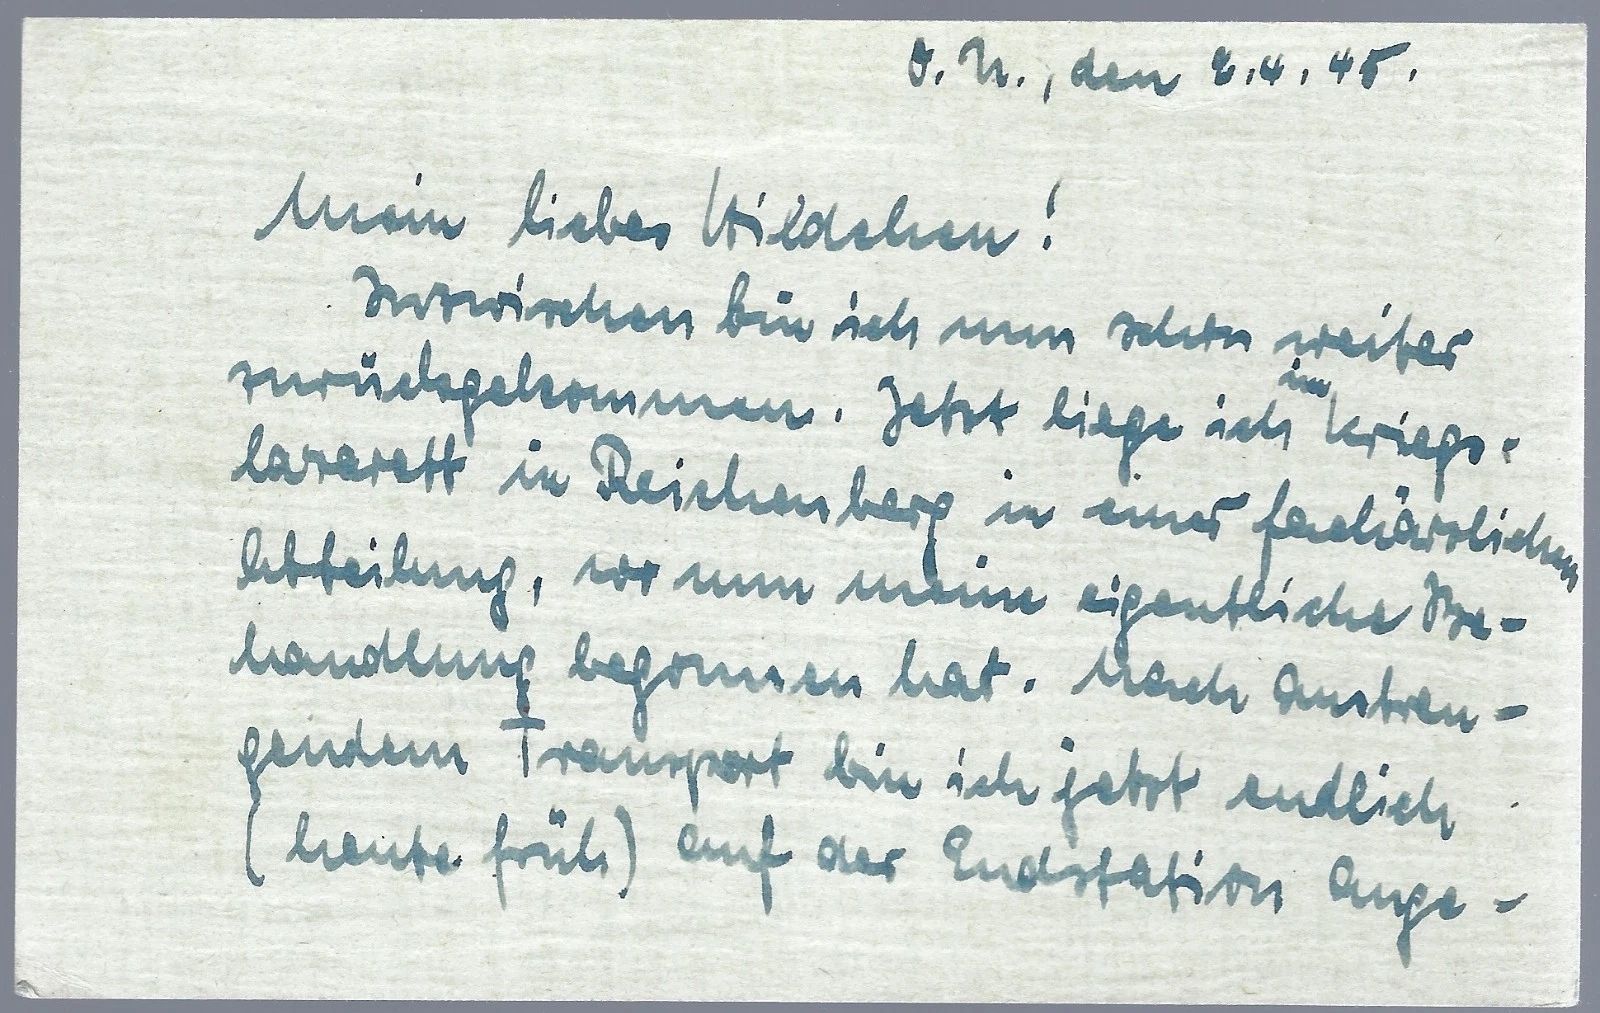 O. U., den 2.4.45.
Mein liebes Hildchen!
Inzwischen bin ich nun schon weiter
zurückgekommen. Jetzt liege ich im Kriegs-
lazarett in Reichenberg in einer fachärzlichen
Abteilung, wo nun meine eigentliche Be-
handlung begonnen hat. Nach anstren-
gendem Transport bin ich jetzt endlich
(heute früh) auf der Endstation ange-